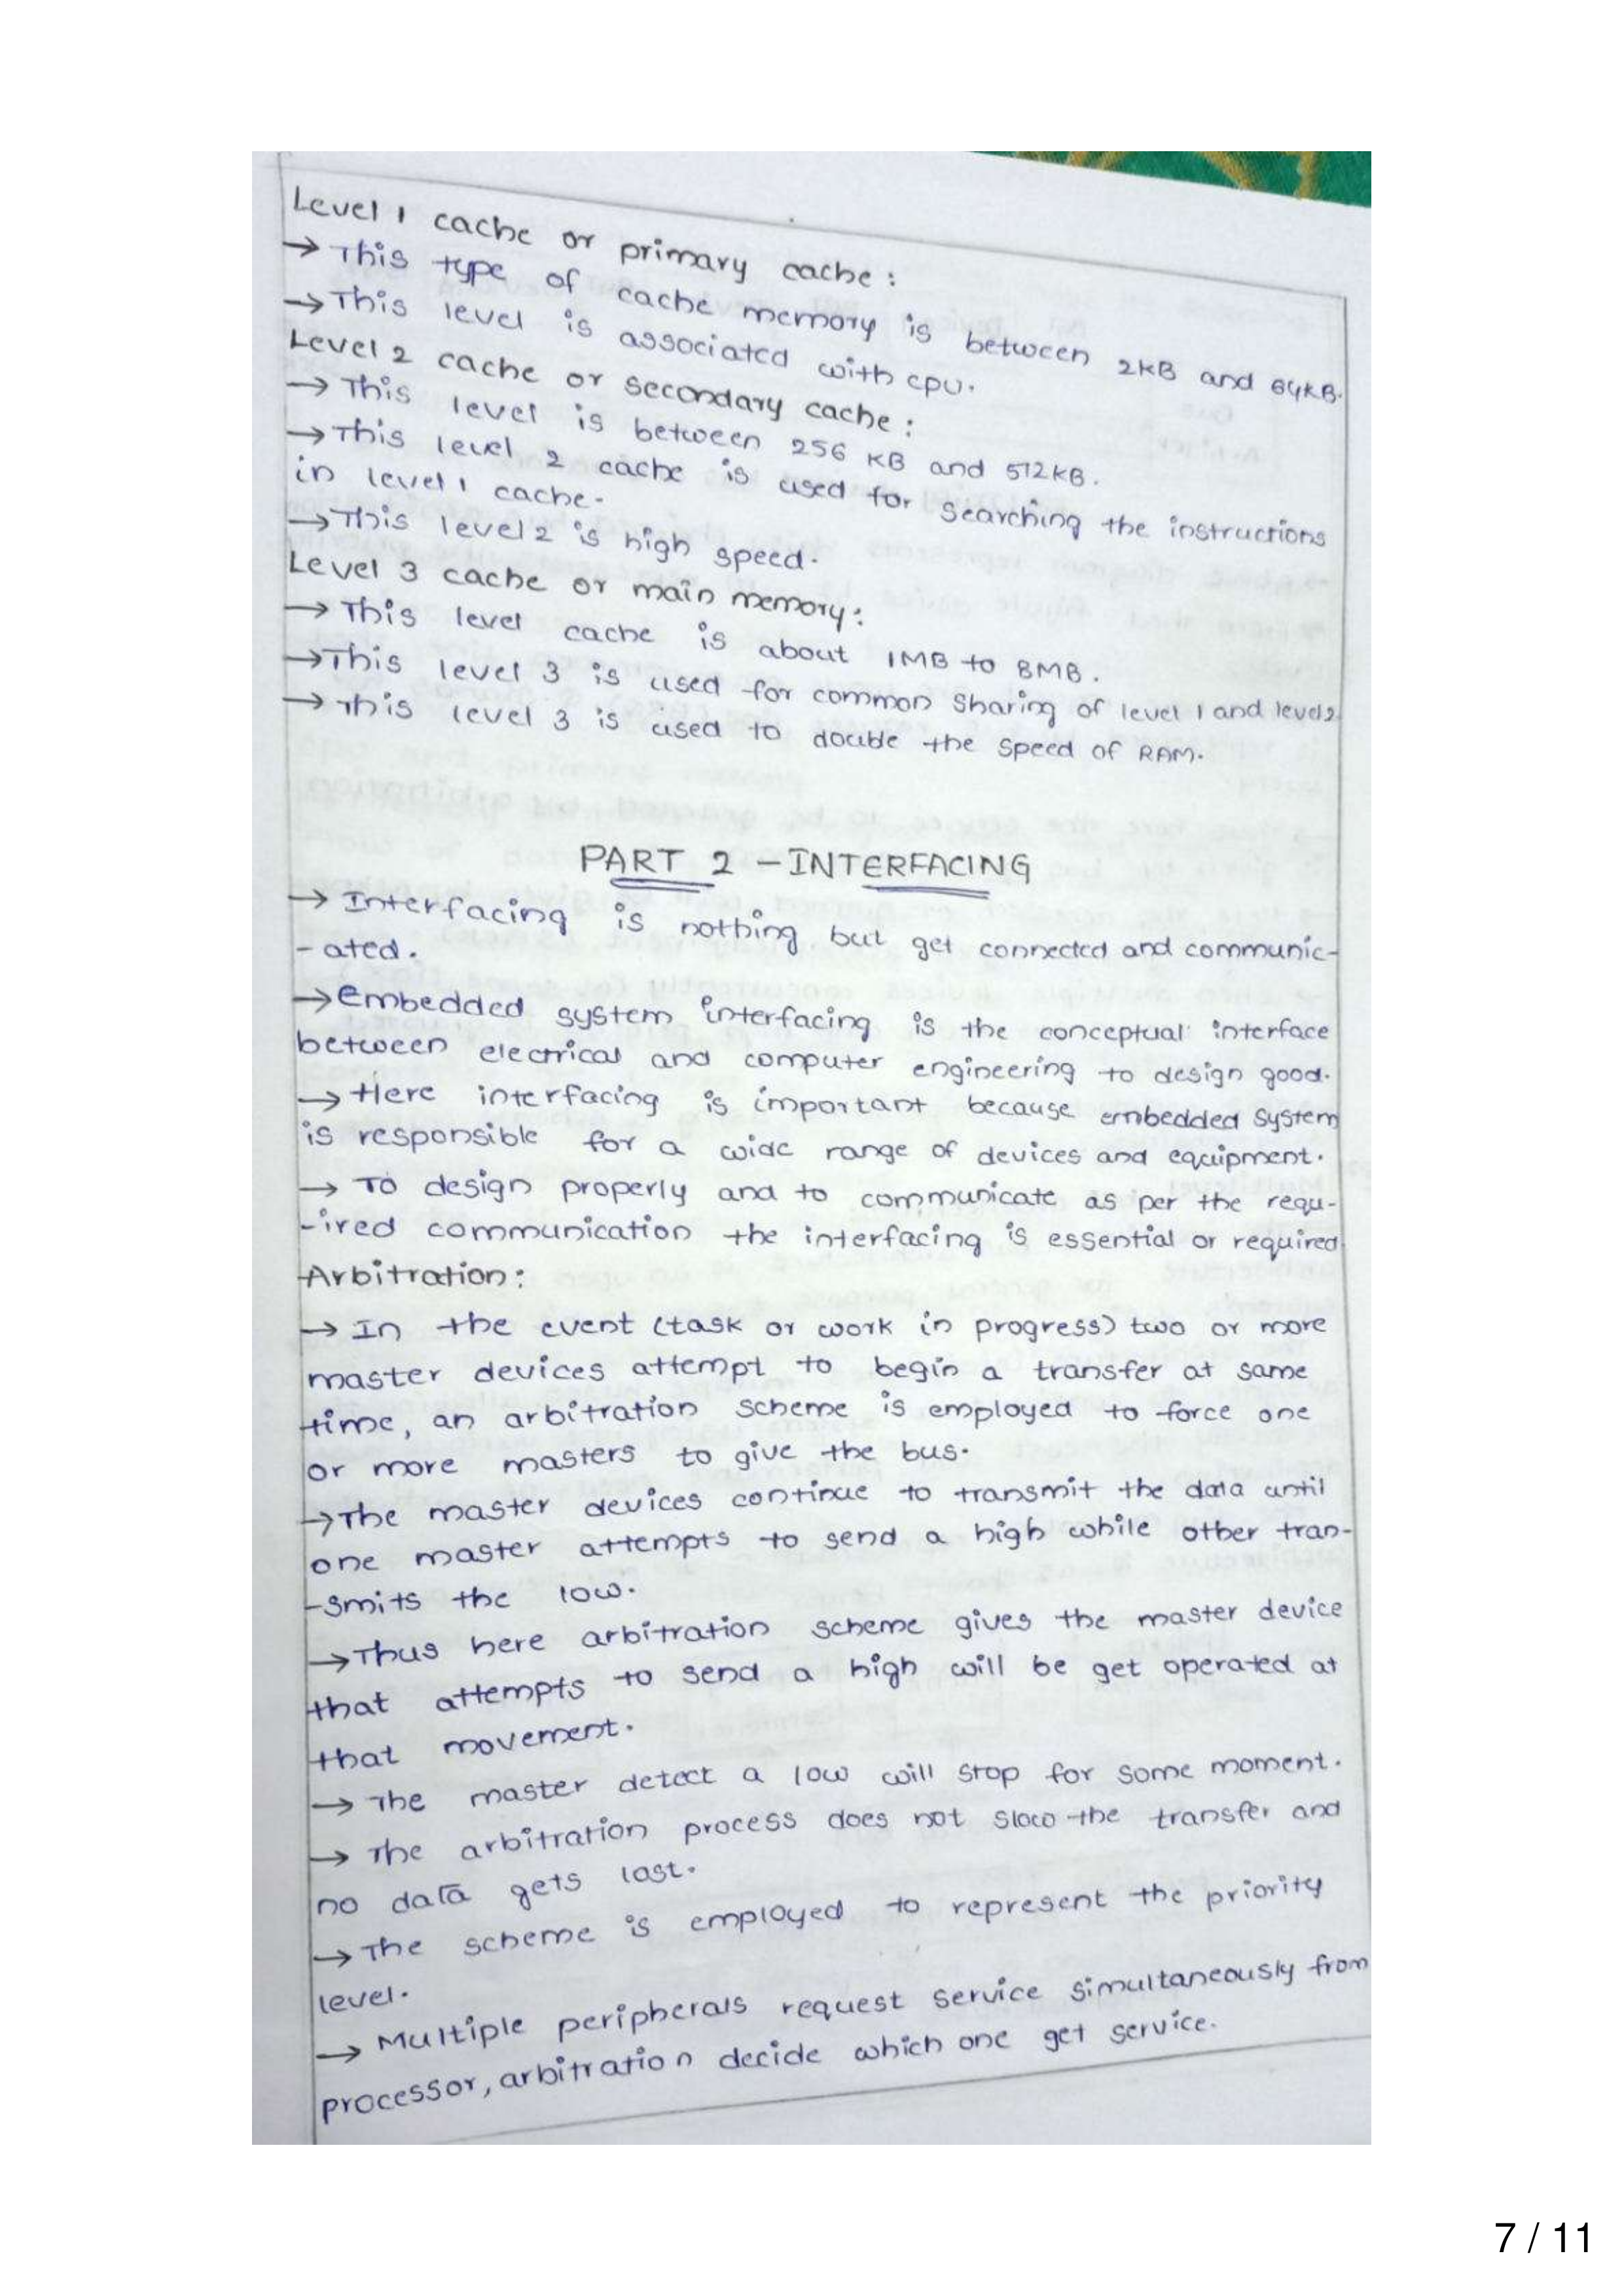 Level 1 cache or primary cache :
→ This type of cache memory is between 2KB and 64KB.
→ This level is associated with cpu.
Level 2 cache or secondary cache :
→ This level is between 256 KB and 512KB.
→ This level 2 cache is used for searching the instructions
in level 1 cache.
→ This level 2 is high speed.
Level 3 cache or main memory:
→ This level cache is about 1MB to 8MB.
→ This level 3 is used for common sharing of level 1 and level 2
→ This level 3 is used to double the speed of RAM.
PART 2 - INTERFACING
→ Interfacing is nothing but get connected and communic-
- ated.
→ Embedded system interfacing is the conceptual interface
between electrical and computer engineering to design good.
→ Here interfacing is important because embedded system
is responsible for a wide range of devices and equipment.
→ To design properly and to communicate as per the requ-
-ired communication the interfacing is essential or required
Arbitration:
→ In the event (task or work in progress) two or more
master devices attempt to begin a transfer at same
time, an arbitration scheme is employed to force one
or more masters to give the bus.
→ The master devices continue to transmit the data until
one master attempts to send a high while other tran-
-smits the low.
→ Thus here arbitration scheme gives the master device
that attempts to send a high will be get operated at
that movement.
→ The master detect a low will stop for some moment.
→ The arbitration process does not slow the transfer and
no data gets lost.
→ The scheme is employed to represent the priority
level.
→ Multiple peripherals request service simultaneously from
processor, arbitration decide which one get service.
7 / 11